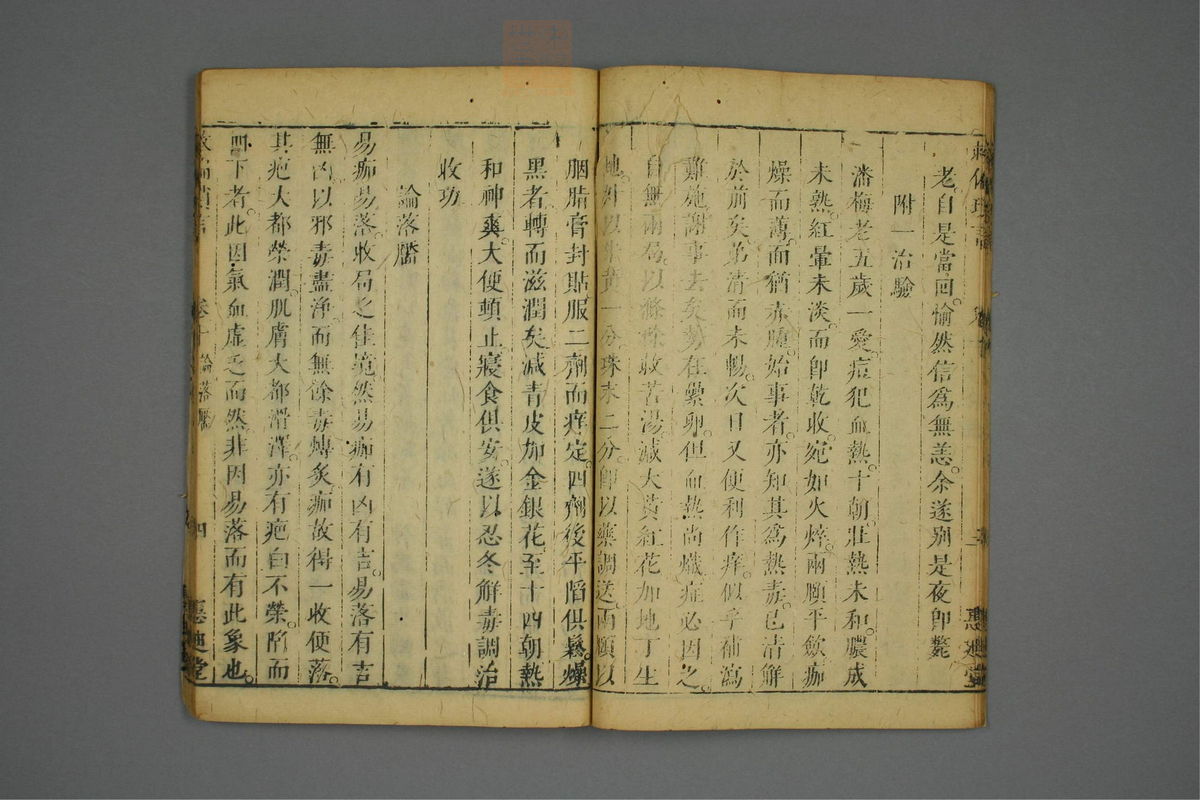 老自是當回愉然信爲無恙余遂别是夜卽斃
附一治驗
潘梅老五歲一愛痘犯血熱十朝壯熱未和膿成
未熟紅暈未淡而卽乾收宛如火烨兩頤平歛痂
燥而薄而猶赤腫始事者亦知其爲熱毒已清解
於前矣弟清而未暢次日又便利作痒似乎補瀉
難施謝事去矣勢在纍卵但血熱尚熾症必因之
自無兩局以滌條收苦湯減大黄紅花加地丁生
地 以 黄一分珠末二分卽以藥調送兩頤以
胭脂膏封貼服二劑而痒定四劑後平陷俱鬆燥
黑者轉而滋潤矣減青皮加金銀花至十四朝熱
和神爽大便頓止寢食俱安遂以忍冬解毒調治
收功
論落靨
易痂易落收局之佳范然易痂有凶有吉易落有吉
無凶以邪毒盡淨而無餘毒煿炙痂故得一收便落
其疤大都榮潤肌膚大都滑澤亦有疤白不榮陷而
凹下者此因氣血虛乏而然非因易落而有此象也
卷十 論落靨 四 惠迪堂